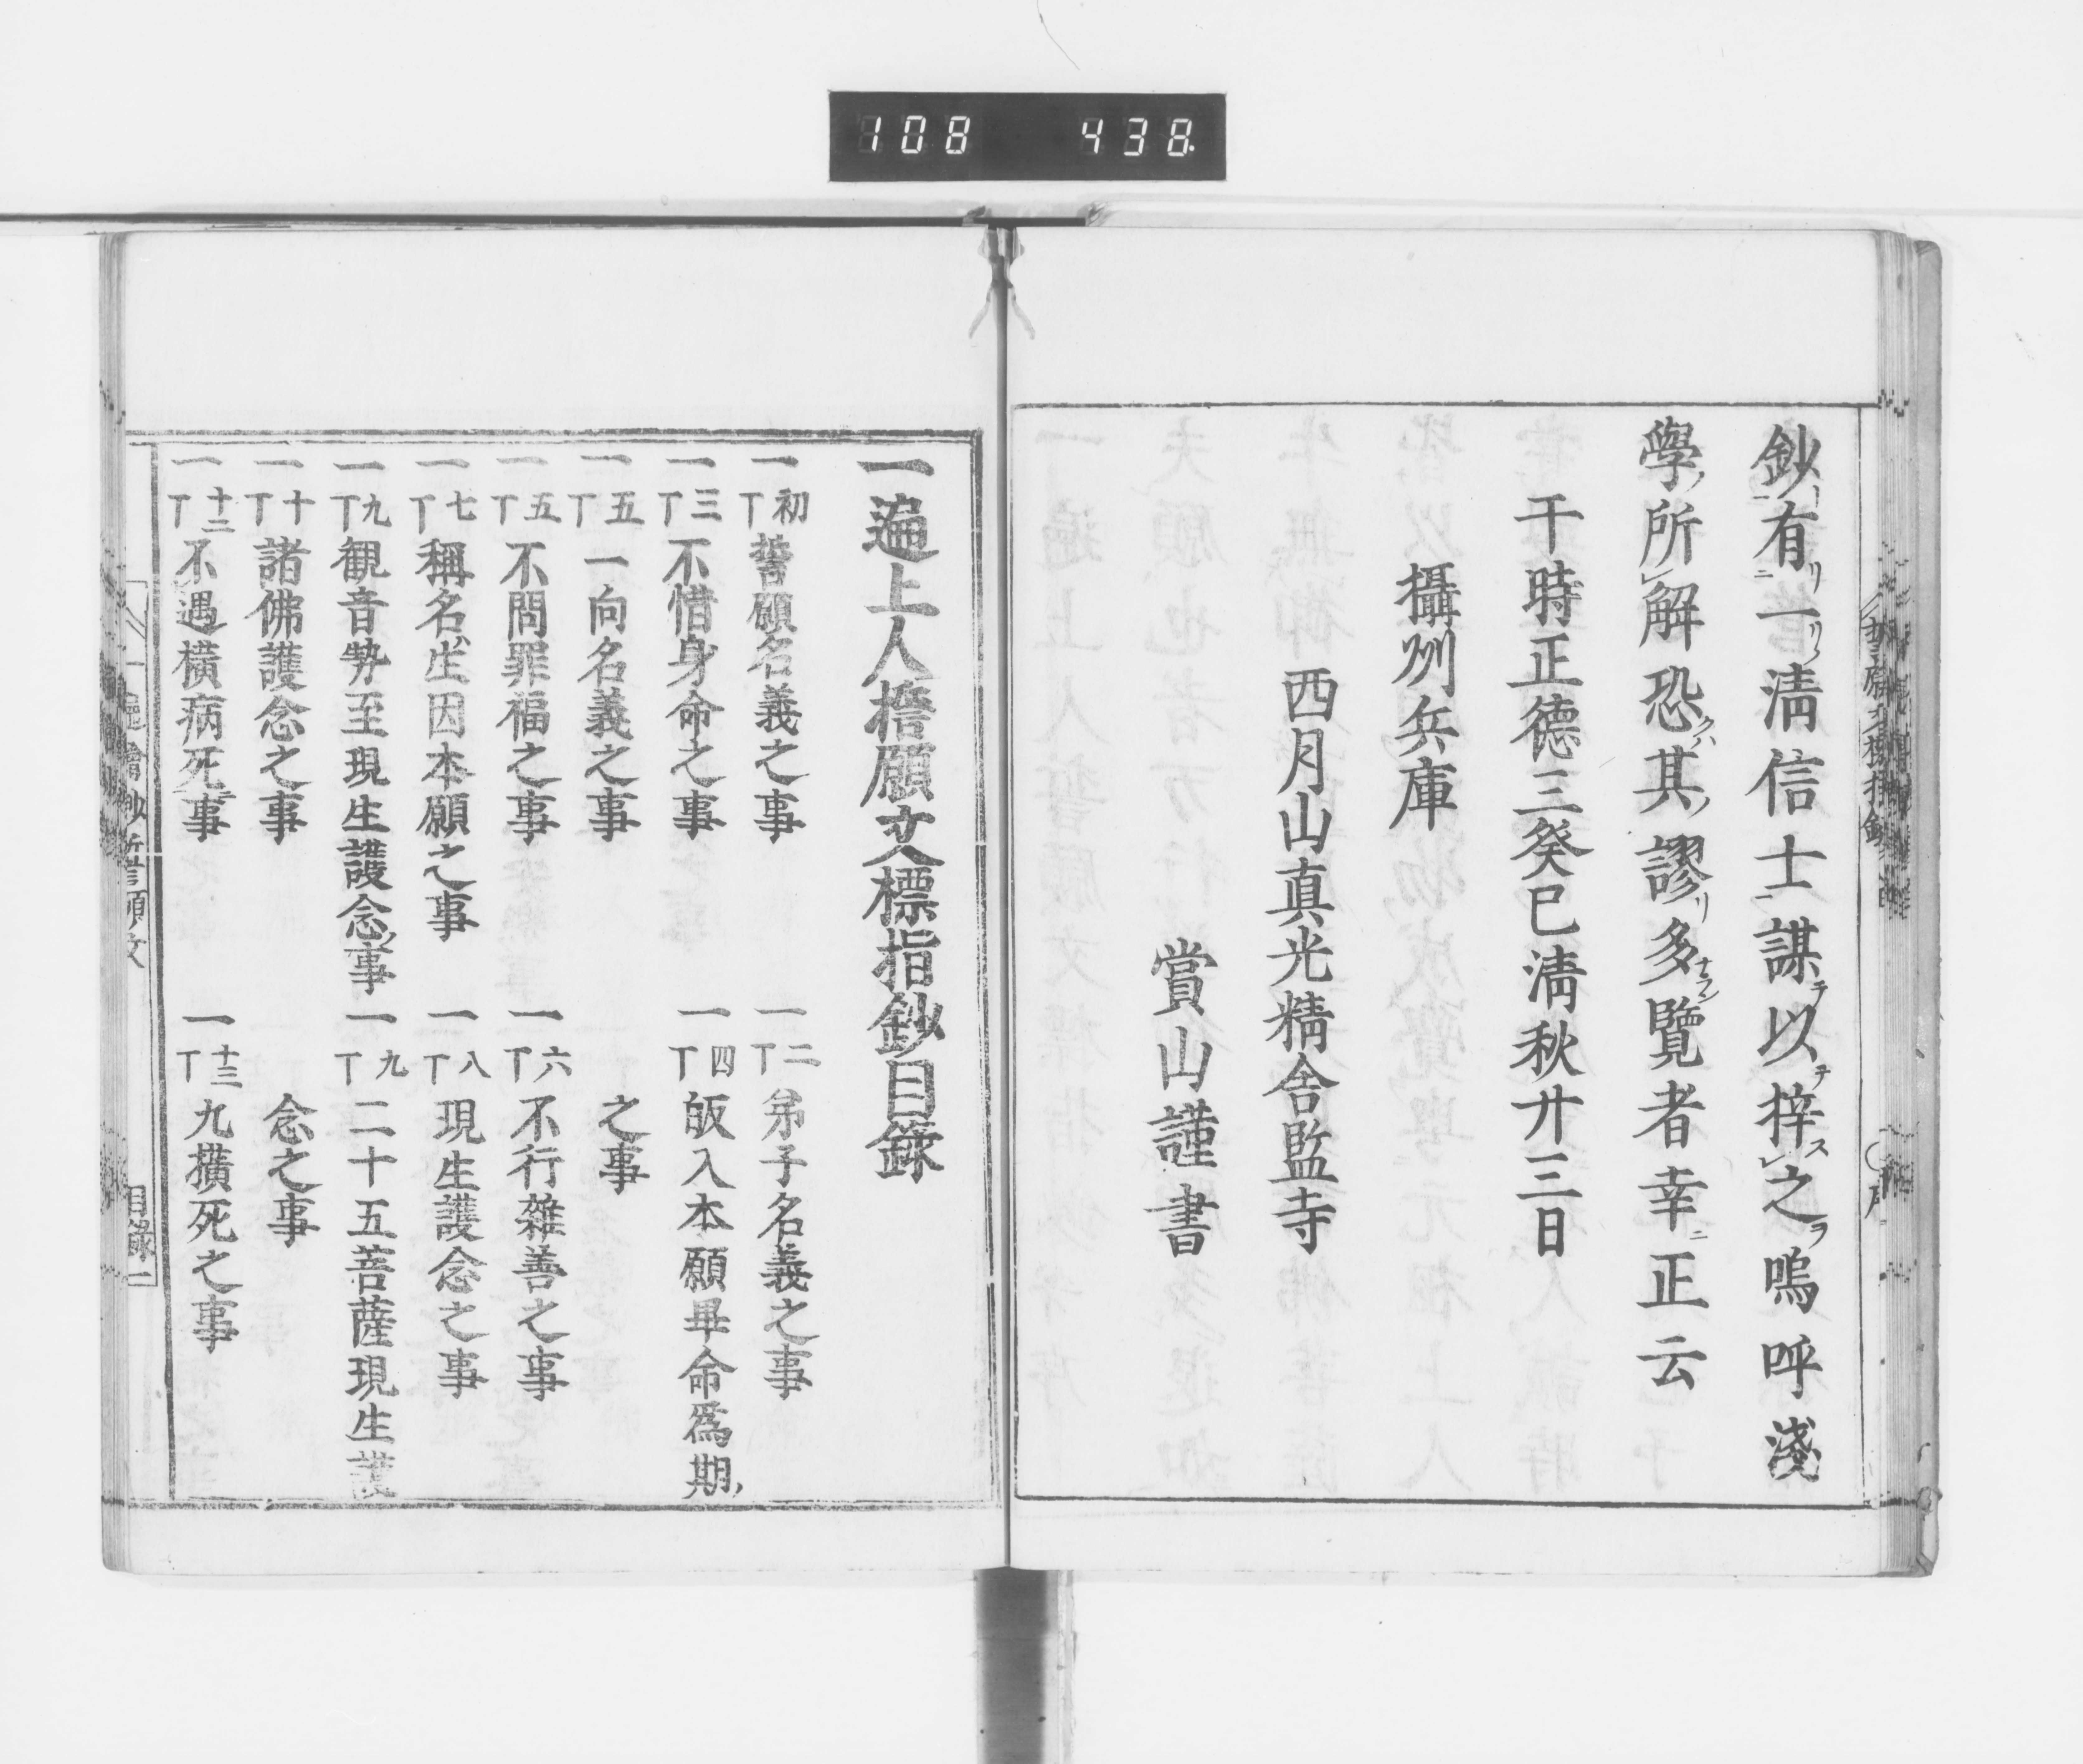 108 438
鈔有一清信士謀以梓之嗚呼淺
學所解恐其謬多覽者幸正云
干時正德三癸巳清秋廾三日
攝州兵庫
西月山真光精舍監寺
賞山謹書
一遍上人誓願文標指鈔目錄
一 初丁 誓願名義之事
一 二丁 弟子名義之事
一 三丁 不惜身命之事
一 四丁 皈入本願畢命爲期
一 五丁 一向名義之事
之事
一 五丁 不問罪福之事
一 六丁 不行雜善之事
一 七丁 稱名生因本願之事
一 八丁 現生護念之事
一 九丁 観音勢至現生護念事
一 九丁 二十五菩薩現生護
一 十丁 諸佛護念之事
念之事
一 十二丁 不遇橫病死事
一 十三丁 九橫死之事
目錄 一